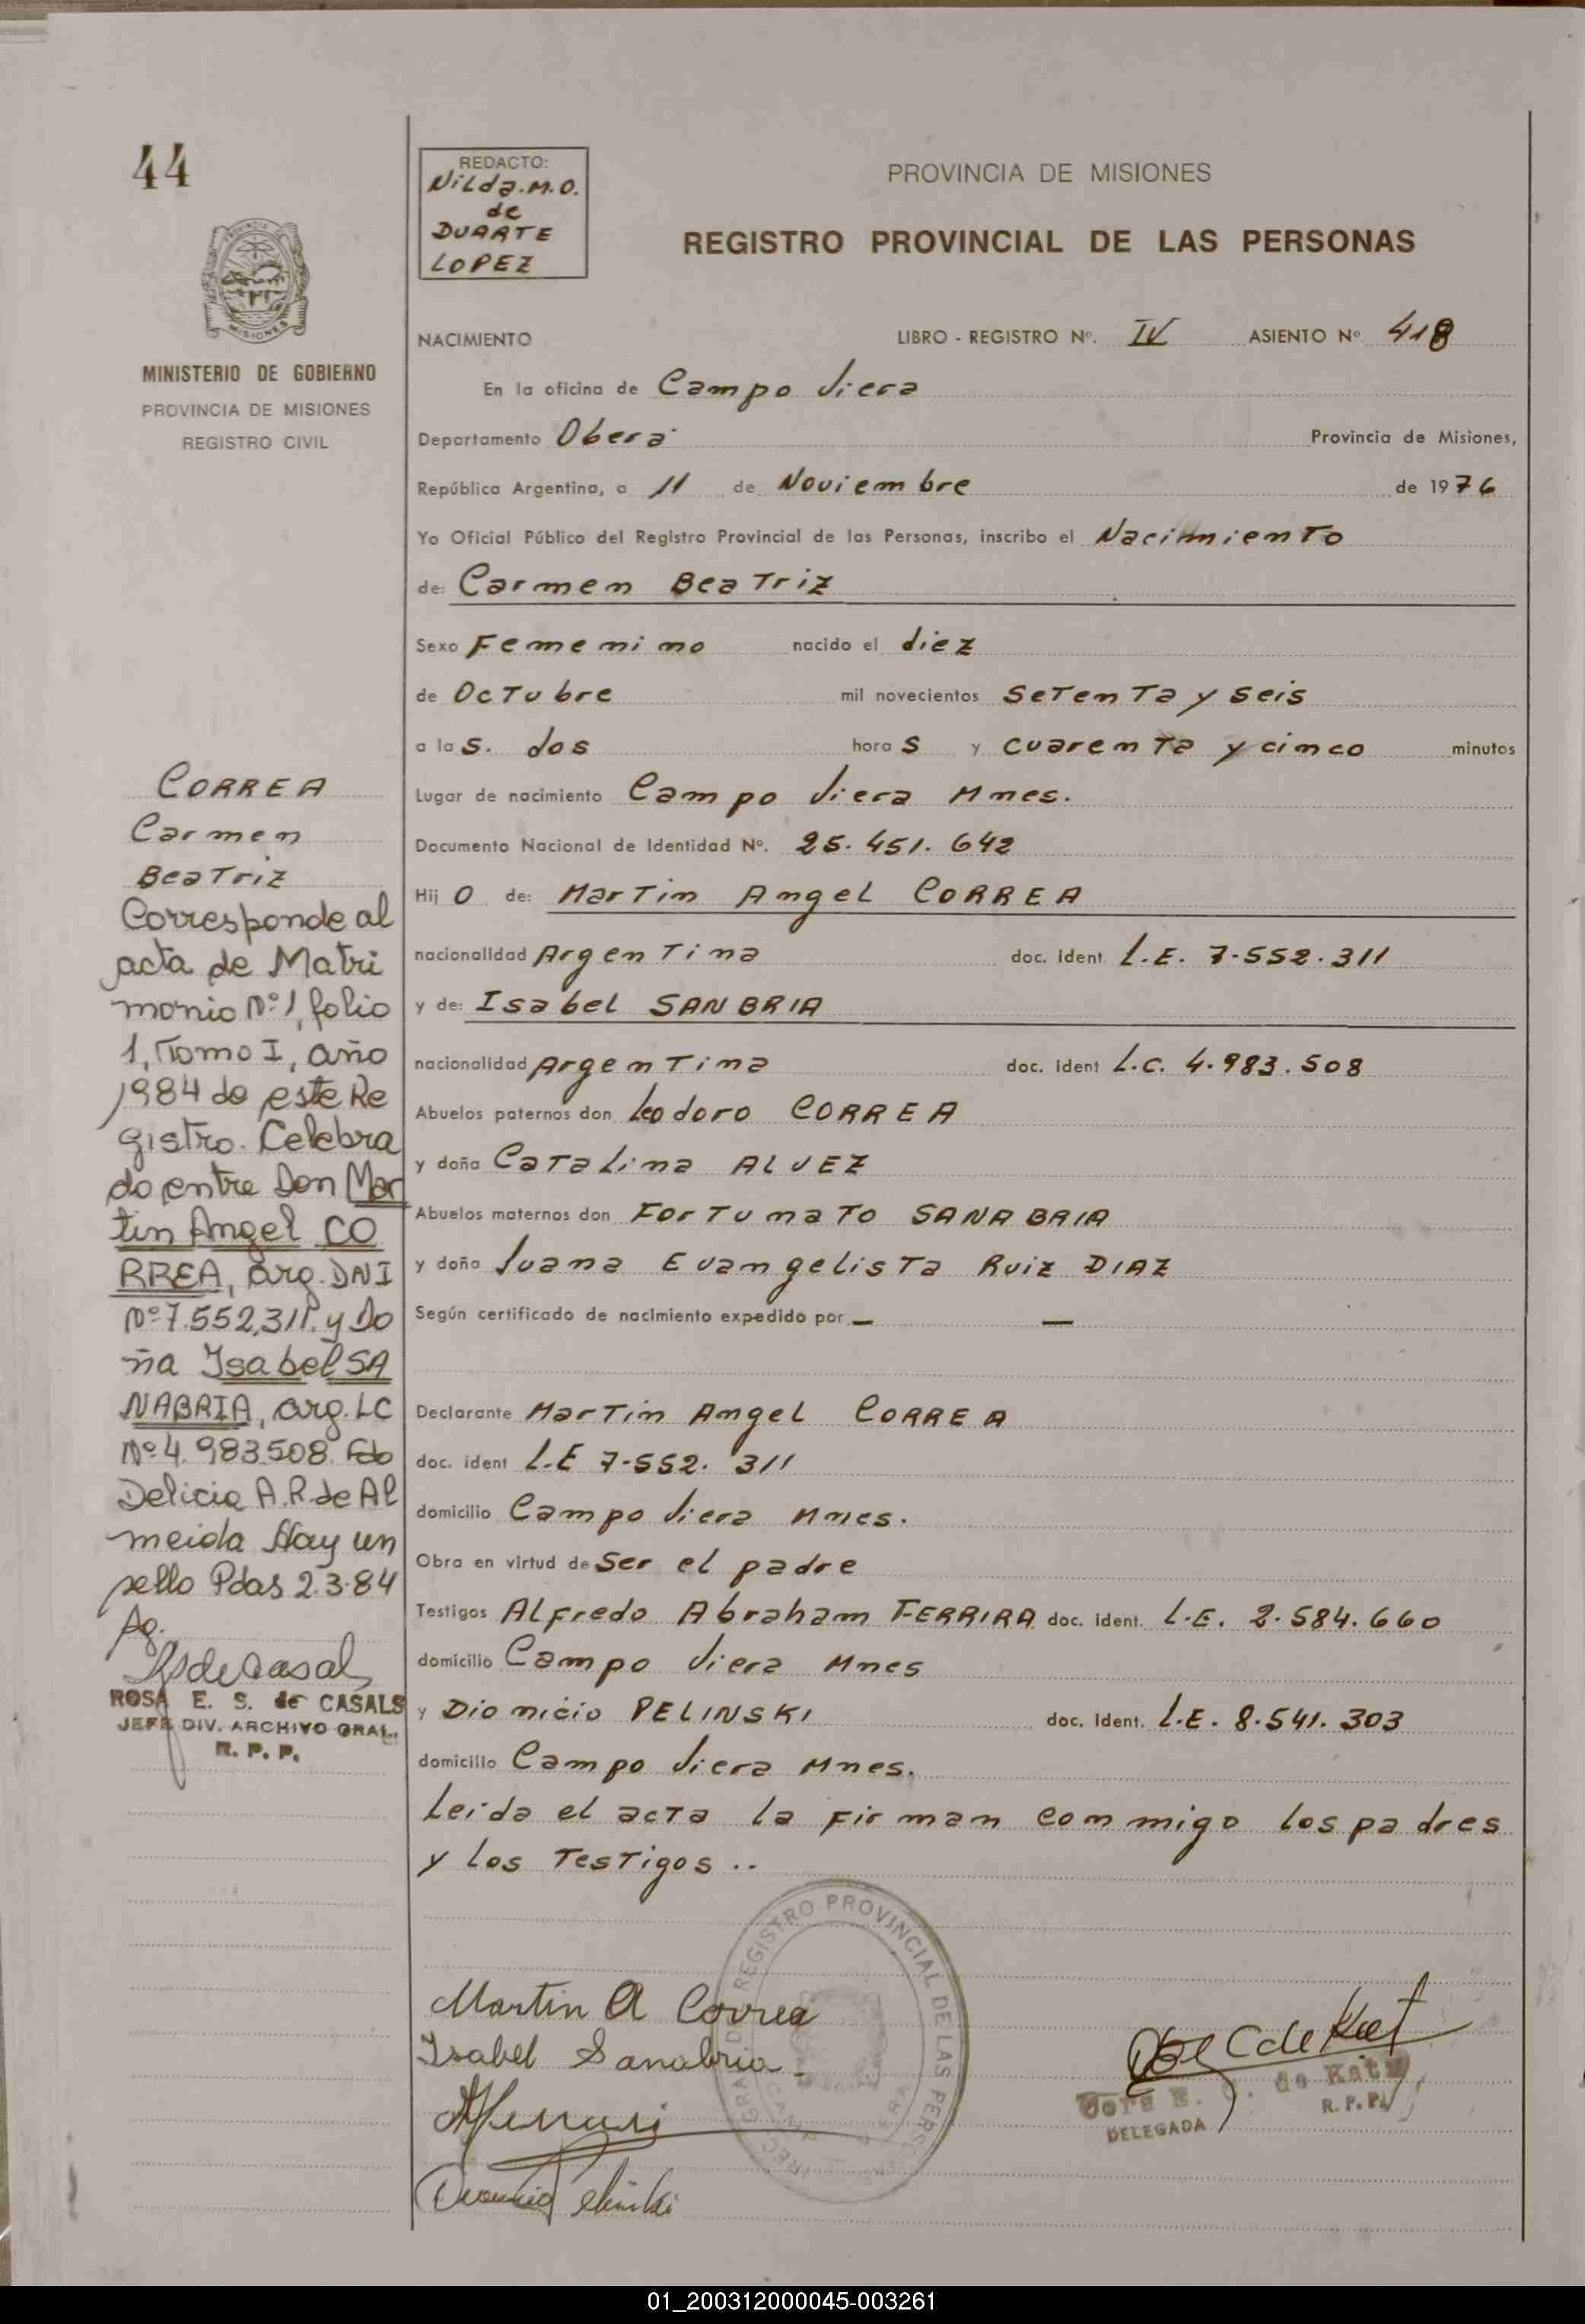 44
MINISTERIO DE GOBIERNO
PROVINCIA DE MISIONES
REGISTRO CIVIL
CORREA
Carmen
Beatriz
Corresponde al
acta de Matri
monio Nº 1, folio
1, Tomo I, año
1984 de este Re
gistro. Celebra
do entre Don Mar
tin Angel CO
RREA, arg. DNI
Nº 7.552,311. y Do
ña Isabel SA
NABRIA, arg. LC
Nº 4.983.508. Fdo
Delicia A.R. de Al
meida Hay un
sello Pdas 2.3.84
Ag.
ROSA E. S. de CASALS
JEFE DIV. ARCHIVO GRAL.
R. P. P.
REDACTO:
Nilda.M.O.
de
DUARTE
LOPEZ
PROVINCIA DE MISIONES
REGISTRO PROVINCIAL DE LAS PERSONAS
NACIMIENTO LIBRO - REGISTRO Nº. IV ASIENTO Nº 418
En la oficina de Campo Viera
Departamento Oberá Provincia de Misiones,
República Argentina, a 11 de Noviembre de 1976
Yo Oficial Público del Registro Provincial de las Personas, inscribo el Nacimiento
de: Carmen Beatriz
Sexo Femenino nacido el diez
de Octubre mil novecientos setenta y seis
a las. dos horas y cuarenta y cinco minutos
Lugar de nacimiento Campo Viera Mnes.
Documento Nacional de Identidad Nº. 25.451.642
Hij O de: Martin Angel CORREA
nacionalidad Argentina doc. ident. L.E. 7.552.311
y de: Isabel SANBRIA
nacionalidad Argentina doc. ident L.C. 4.983.508
Abuelos paternos don Leodoro CORREA
y doña Catalina ALVEZ
Abuelos maternos don Fortunato SANABRIA
y doña Juana Evangelista Ruiz DIAZ
Según certificado de nacimiento expedido por — —
Declarante Martin Angel CORREA
doc. ident L.E 7.552.311
domicilio Campo Viera Mnes.
Obra en virtud de ser el padre
Testigos Alfredo Abraham FERRIRA doc. ident. L.E. 2.584.660
domicilio Campo Viera Mnes
y Dionicio PELINSKI doc. ident. L.E. 8.541.303
domicilio Campo Viera Mnes.
Leida el acta la firman conmigo los padres
y los testigos..
REGISTRO PROVINCIAL DE LAS PERS
Martin A Correa
Isabel Sanabria
DELEGADA
R. P. P.
01_200312000045-003261